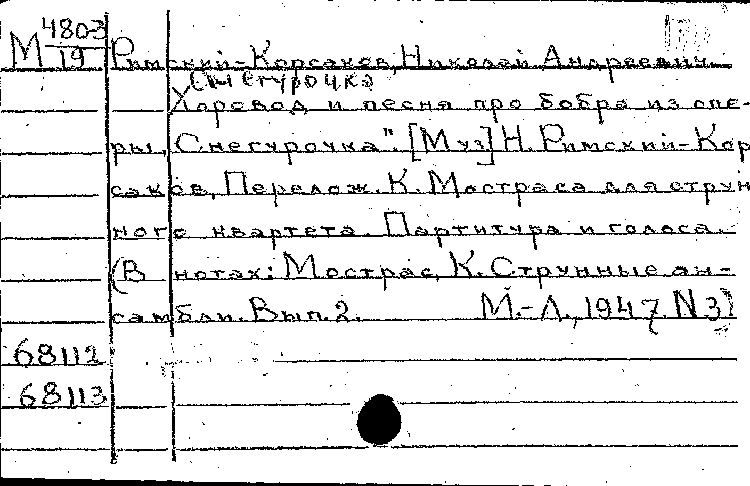 М 4803/19 Римский-Корсаков, Николай Андреевич.
Снегурочка
Хоровод и песня про бобра из опе-
ры „Снегурочка". [Муз] Н. Римский-Кор
саков, Перелож. К. Мостраса для струн
ного квартета. Партитура и голоса.
(В нотах: Мострас, К. Струнные ан-
самбли. Вып. 2. М.-Л., 1947. N 3)
68112
68113